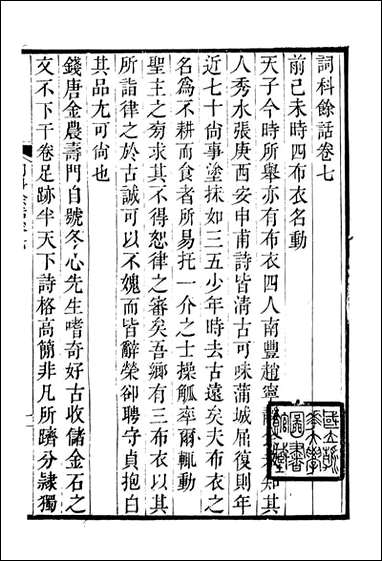 詞科餘話卷七
前己未時四布衣名動
天子今時所舉亦有布衣四人南豐趙寧知其
人秀水張庚西安申甫詩皆清古可味蒲城屈復則年
近七十尚事塗抹如三五少年時去古遠矣夫布衣之
名為不耕而食者所易托一介之士操觚率爾輒動
聖主之旁求其不得恕律之審矣吾鄉有三布衣以其
所詣律之於古誠可以不媿而皆辭榮卻聘守貞抱白
其品尤可尚也
錢唐金農壽門自號冬心先生嗜奇好古收儲金石之
文不下千卷足跡半天下詩格高簡非凡所躋分隸獨
大學
圖書